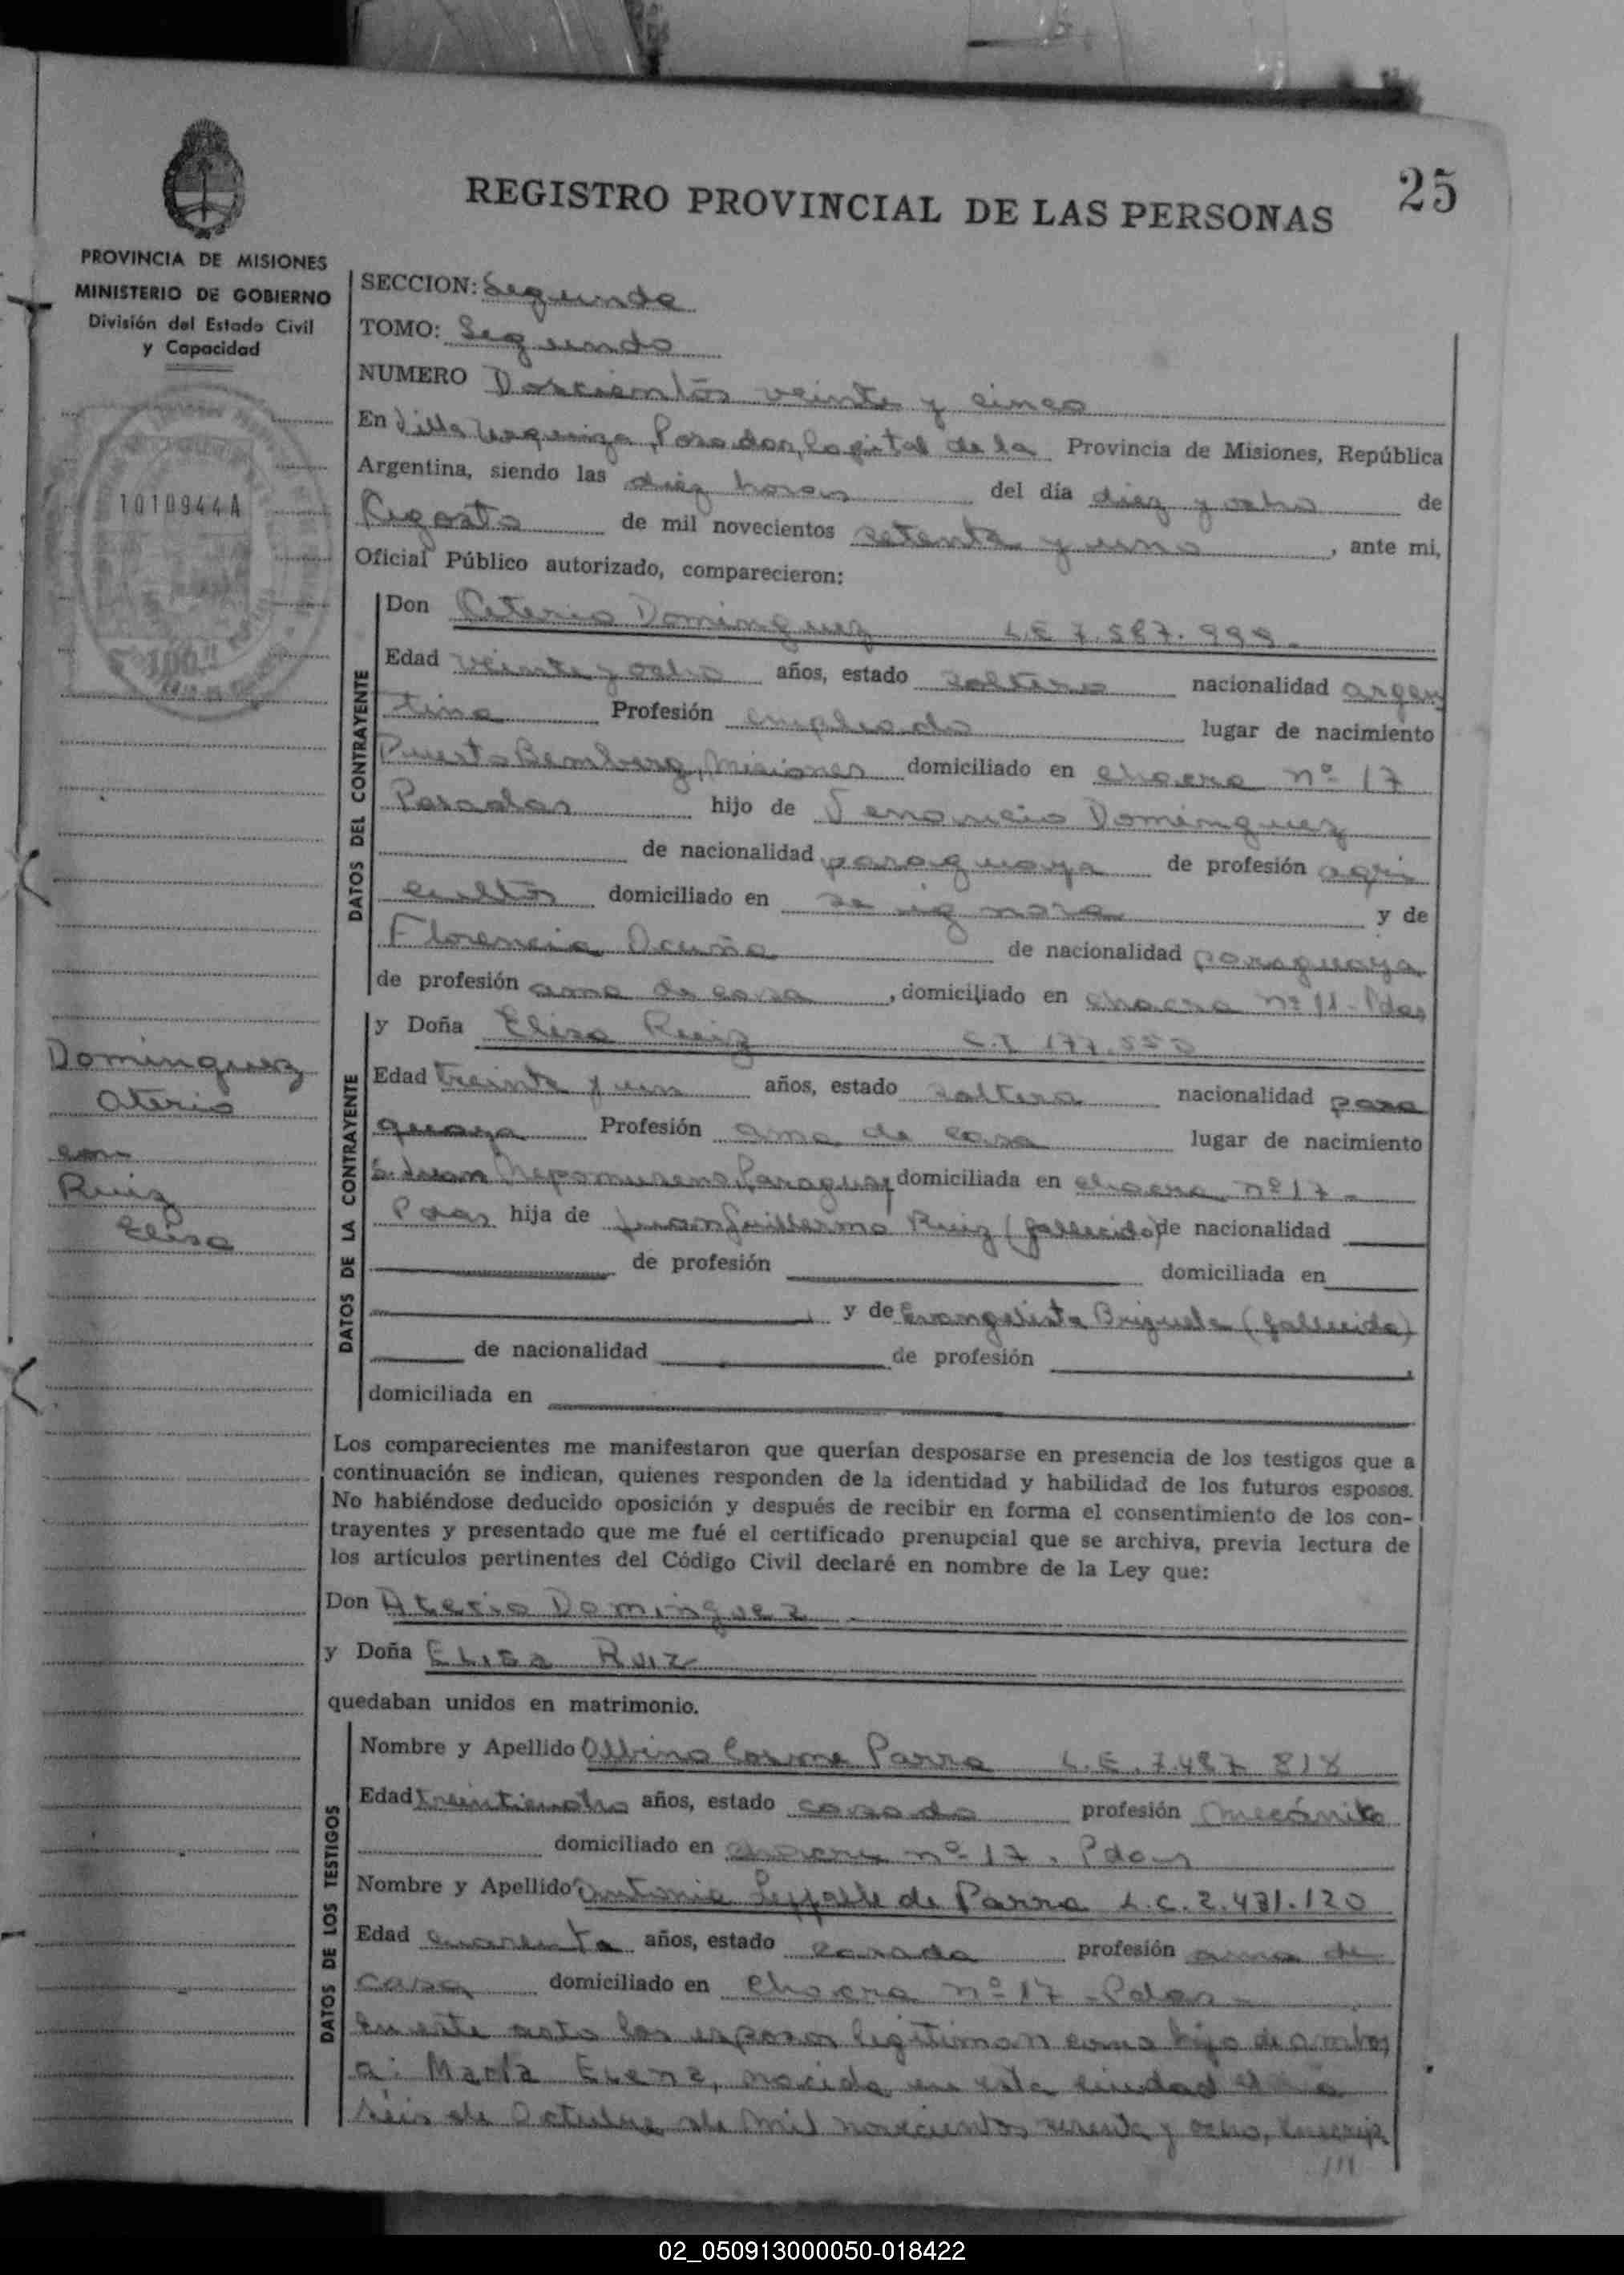 25
REGISTRO PROVINCIAL DE LAS PERSONAS
PROVINCIA DE MISIONES
MINISTERIO DE GOBIERNO
División del Estado Civil
y Capacidad
1010944A
SECCION: Segunda
TOMO: Segundo
NUMERO Doscientos veinte y cinco
En Villa Urquiza, Posadas, Capital de la Provincia de Misiones, República
Argentina, siendo las diez horas del día diez y ocho de
Agosto de mil novecientos setenta y uno, ante mi,
Oficial Público autorizado, comparecieron:
DATOS DEL CONTRAYENTE
Don Aterio Dominguez L.E 7.587.999.-
Edad veinte y ocho años, estado soltero nacionalidad argen
tina Profesión empleado lugar de nacimiento
Puerto Bemberg, Misiones domiciliado en chacra nº 17
Posadas hijo de Venancio Dominguez
de nacionalidad paraguaya de profesión agri
cultor domiciliado en se ignora y de
Florencia Acuña de nacionalidad paraguaya
de profesión ama de casa, domiciliado en chacra nº 11-Pdas
DATOS DE LA CONTRAYENTE
y Doña Elisa Ruiz C.I 177.550
Edad treinta y un años, estado soltera nacionalidad para
guaya Profesión ama de casa lugar de nacimiento
S. Juan Nepomuseno, Paraguay domiciliada en chacra nº 17-
Pdas hija de Juan Guillermo Ruiz (fallecido) de nacionalidad
de profesión domiciliada en
y de Evangelista Brizuela (fallecida)
de nacionalidad de profesión
domiciliada en
Dominguez
Aterio
con
Ruiz
Elisa
Los comparecientes me manifestaron que querían desposarse en presencia de los testigos que a
continuación se indican, quienes responden de la identidad y habilidad de los futuros esposos.
No habiéndose deducido oposición y después de recibir en forma el consentimiento de los con-
trayentes y presentado que me fué el certificado prenupcial que se archiva, previa lectura de
los artículos pertinentes del Código Civil declaré en nombre de la Ley que:
Don Aterio Dominguez
y Doña ELisa Ruiz
quedaban unidos en matrimonio.
DATOS DE LOS TESTIGOS
Nombre y Apellido Albino Cosme Parra L.E. 7.487 818
Edad treintiocho años, estado casado profesión Mecánico
domiciliado en chacra nº 17. Pdas
Nombre y Apellido Antonia de Parra L.C. 2.431.120
Edad cuarenta años, estado casada profesión ama de
casa domiciliado en chacra nº 17 -Pdas-
En este acto los esposos legitiman como hija de ambos
a: Marta Elena, nacida en esta ciudad el día
seis de Octubre de mil novecientos sesenta y ocho, inscrip
///
02_050913000050-018422